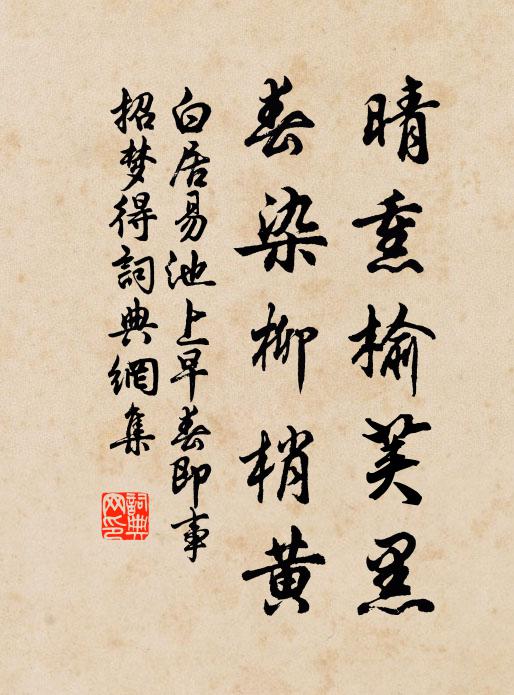 晴熏榆荚黑
春染柳梢黄
白居易池上早春即事
招梦得詞典網集
詞典
网印